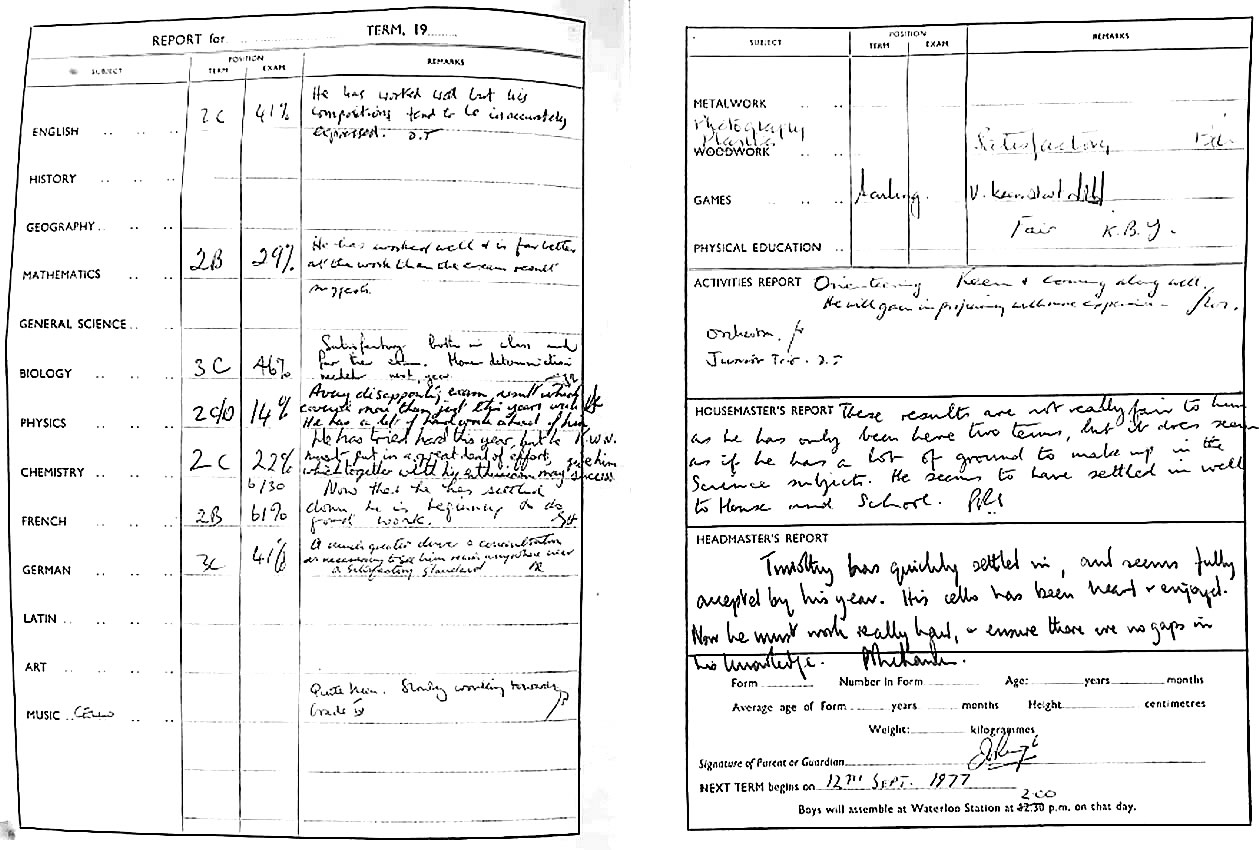 REPORT for TERM, 19
SUBJECT POSITION REMARKS
TERM EXAM
ENGLISH 2C 41% He has worked well but his
compositions tend to be inaccurately
expressed. D.T
HISTORY
GEOGRAPHY
MATHEMATICS 2B 29% He has worked well & is far better
at the work than the exam result
suggests.
GENERAL SCIENCE
BIOLOGY 3C 46% Satisfactory both in class and
for the exam. More determination
needed next year.
PHYSICS 2C/D 14% A very disappointing exam result which
covered more than just this years work. He
He has a lot of hard work ahead of him
CHEMISTRY 2C 22% He has tried hard this year, but he R.W.N.
must put in a great deal of effort,
which together with his enthusiasm may give him success
FRENCH 2B 6/30 61% Now that he has settled
down, he is beginning to do
good work.
GERMAN 3C 41% A much greater drive & concentration
is necessary to get him anywhere near
a satisfactory standard
LATIN
ART
MUSIC Cello Quite keen. Slowly working towards
Grade IV
SUBJECT POSITION REMARKS
TERM EXAM
METALWORK
Photography
Plastics
WOODWORK Satisfactory
GAMES
Fair K.B.Y.
PHYSICAL EDUCATION
ACTIVITIES REPORT Orienteering Keen & coming along well.
He will gain in proficiency with more experience
Orchestra.
Junior
HOUSEMASTER'S REPORT These results are not really fair to him
as he has only been here two terms, but it does seem
as if he has a lot of ground to make up in the
Science subjects. He seems to have settled in well
to House and School.
HEADMASTER'S REPORT
Timothy has quickly settled in, and seems fully
accepted by his year. His cello has been heard & enjoyed.
Now he must work really hard, & ensure there are no gaps in
his knowledge.
Form Number In Form Age: years months
Average age of Form years months Height centimetres
Weight: kilogrammes
Signature of Parent or Guardian
NEXT TERM begins on 12TH SEPT. 1977
2.00
Boys will assemble at Waterloo Station at 12.30 p.m. on that day.